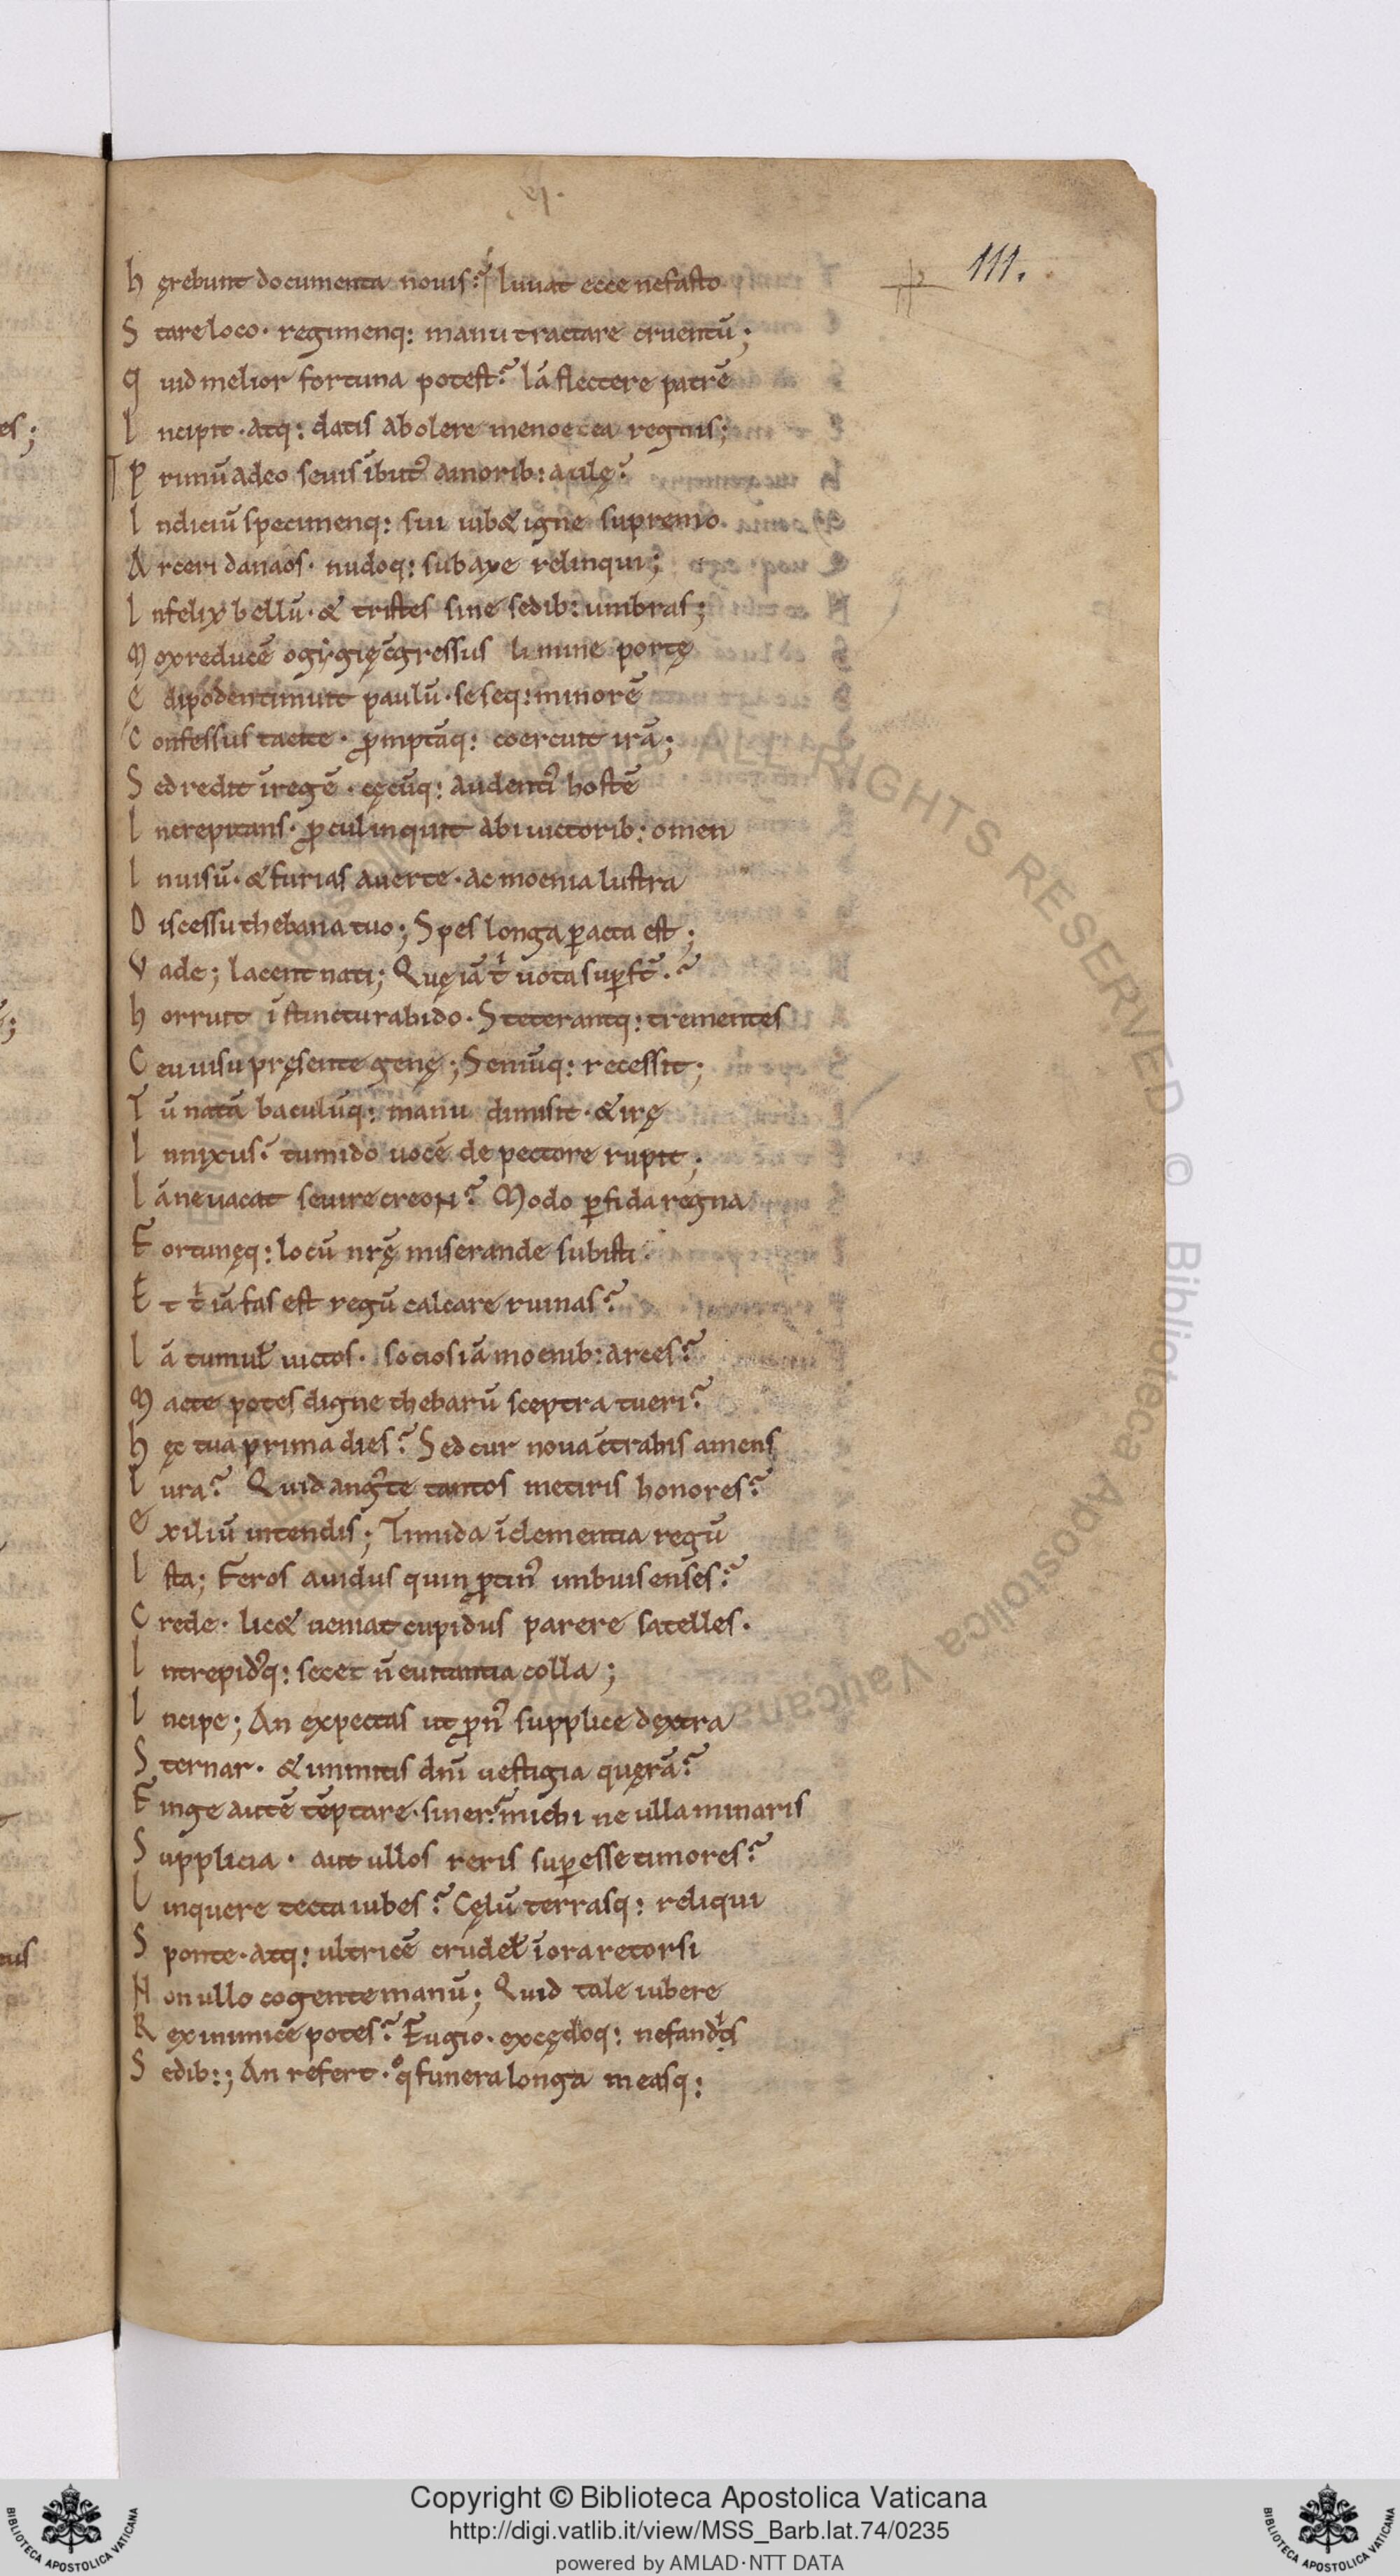 111.
h ęrebunt documenta nouis? Iuuat ecce nefasto
S tare loco · regimenq: manu tractare cruentū;
q uid melior fortuna potest? Iā flectere patrē
I ncipit · atq: datis abolere menoecea regnis;
P rimū adeo seuis ībut᷑ amorib: aulę?
I ndiciū specimenq: sui iub& igne supremo
A rceri danaos · nudoq: sub axe relinqui;
I nfelix bellū · & tristes sine sedib: umbras;
M ox reducē ogygię c̄gressus limine portę
E dipoden timuit paulū · seseq: minorē
C onfessus tacite · p̄mptāq: coercuit irā;
S ed redit ī regē · cęcūq: audenti᷑ hostē
I ncrepitans · p̄cul inquit abi uictorib: omen
I nuisū · & furias auerte · ac moenia lustra
D iscessu thebana tuo; Spes longa ꝑacta est;
V ade; Iacent nati; Quę iā t̄ uota suꝑst̄?
h orruit īstinctu rabido · Steterantq: trementes
C eu uisu pręsente genę; Seniūq: recessit;
T ū natā baculūq: manu dimisit · & irę
I nnixus? tumido uocē de pectore rupit;
I āne uacat seuire creoN? Modo ꝑfida regna
F ortunęq: locū nrę̄ miserande subisti
E t t̄ iā fas est regū calcare ruinas?
I ā tumuł uictos · socios iā moenib: arces?
M acte potes digne thebarū sceptra tueri?
h ęc tua prima dies? Sed cur noua c̄trahis amens
I ura? Quid ang᷑te tantos metiris honores?
E xiliū intendis; Timida īclementia regū
I sta; Feros auidus quin p̄tin᷑ imbuis enses?
C rede · lic& ueniat cupidus parere satelles ·
I ntrepid᷑q: secet n̄ euitantia colla;
I ncipe; An expectas ut p̄n᷑ supplice dextra
S ternar · & inmitis dnī uestigia quęrā?
F inge autē tēptare · siner? michi ne ulla minaris
S upplicia · aut ullos reris suꝑesse timores?
L inquere tecta iubes? Cęlū terrasq: reliqui
S ponte · atq: ultricē crudeł ī ora retorsi
N on ullo cogente manū; Quid tale iubere
R ex inimice potes? Fugio · excędoq: nefandis
S edib:; An refert · qͦ funera longa measq:
Copyright © Biblioteca Apostolica Vaticana
http://digi.vatlib.it/view/MSS_Barb.lat.74/0235
powered by AMLAD·NTT DATA